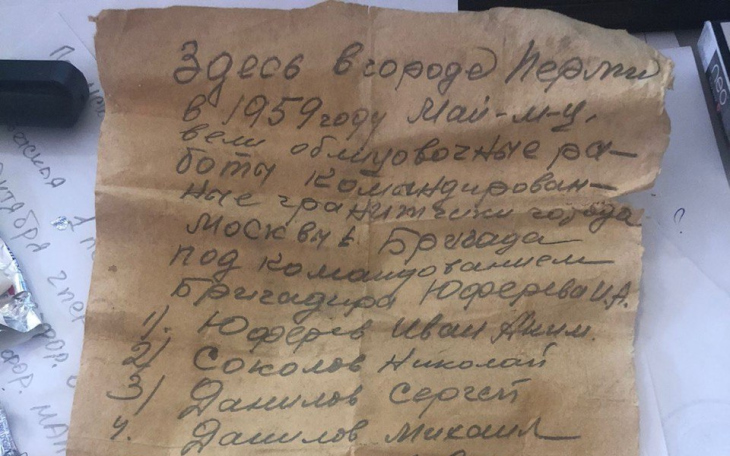 Здесь в городе Перми
в 1959 году Май-м-ц,
вели облицовочные ра-
боты командирован-
ные гранитчики города
Москвы. Бригада
под командованием
Бригадира Юферева И.А.
1). Юферев Иван Аким.
2) Соколов Николай
3) Данилов Сергей
4. Данилов Михаил
neo